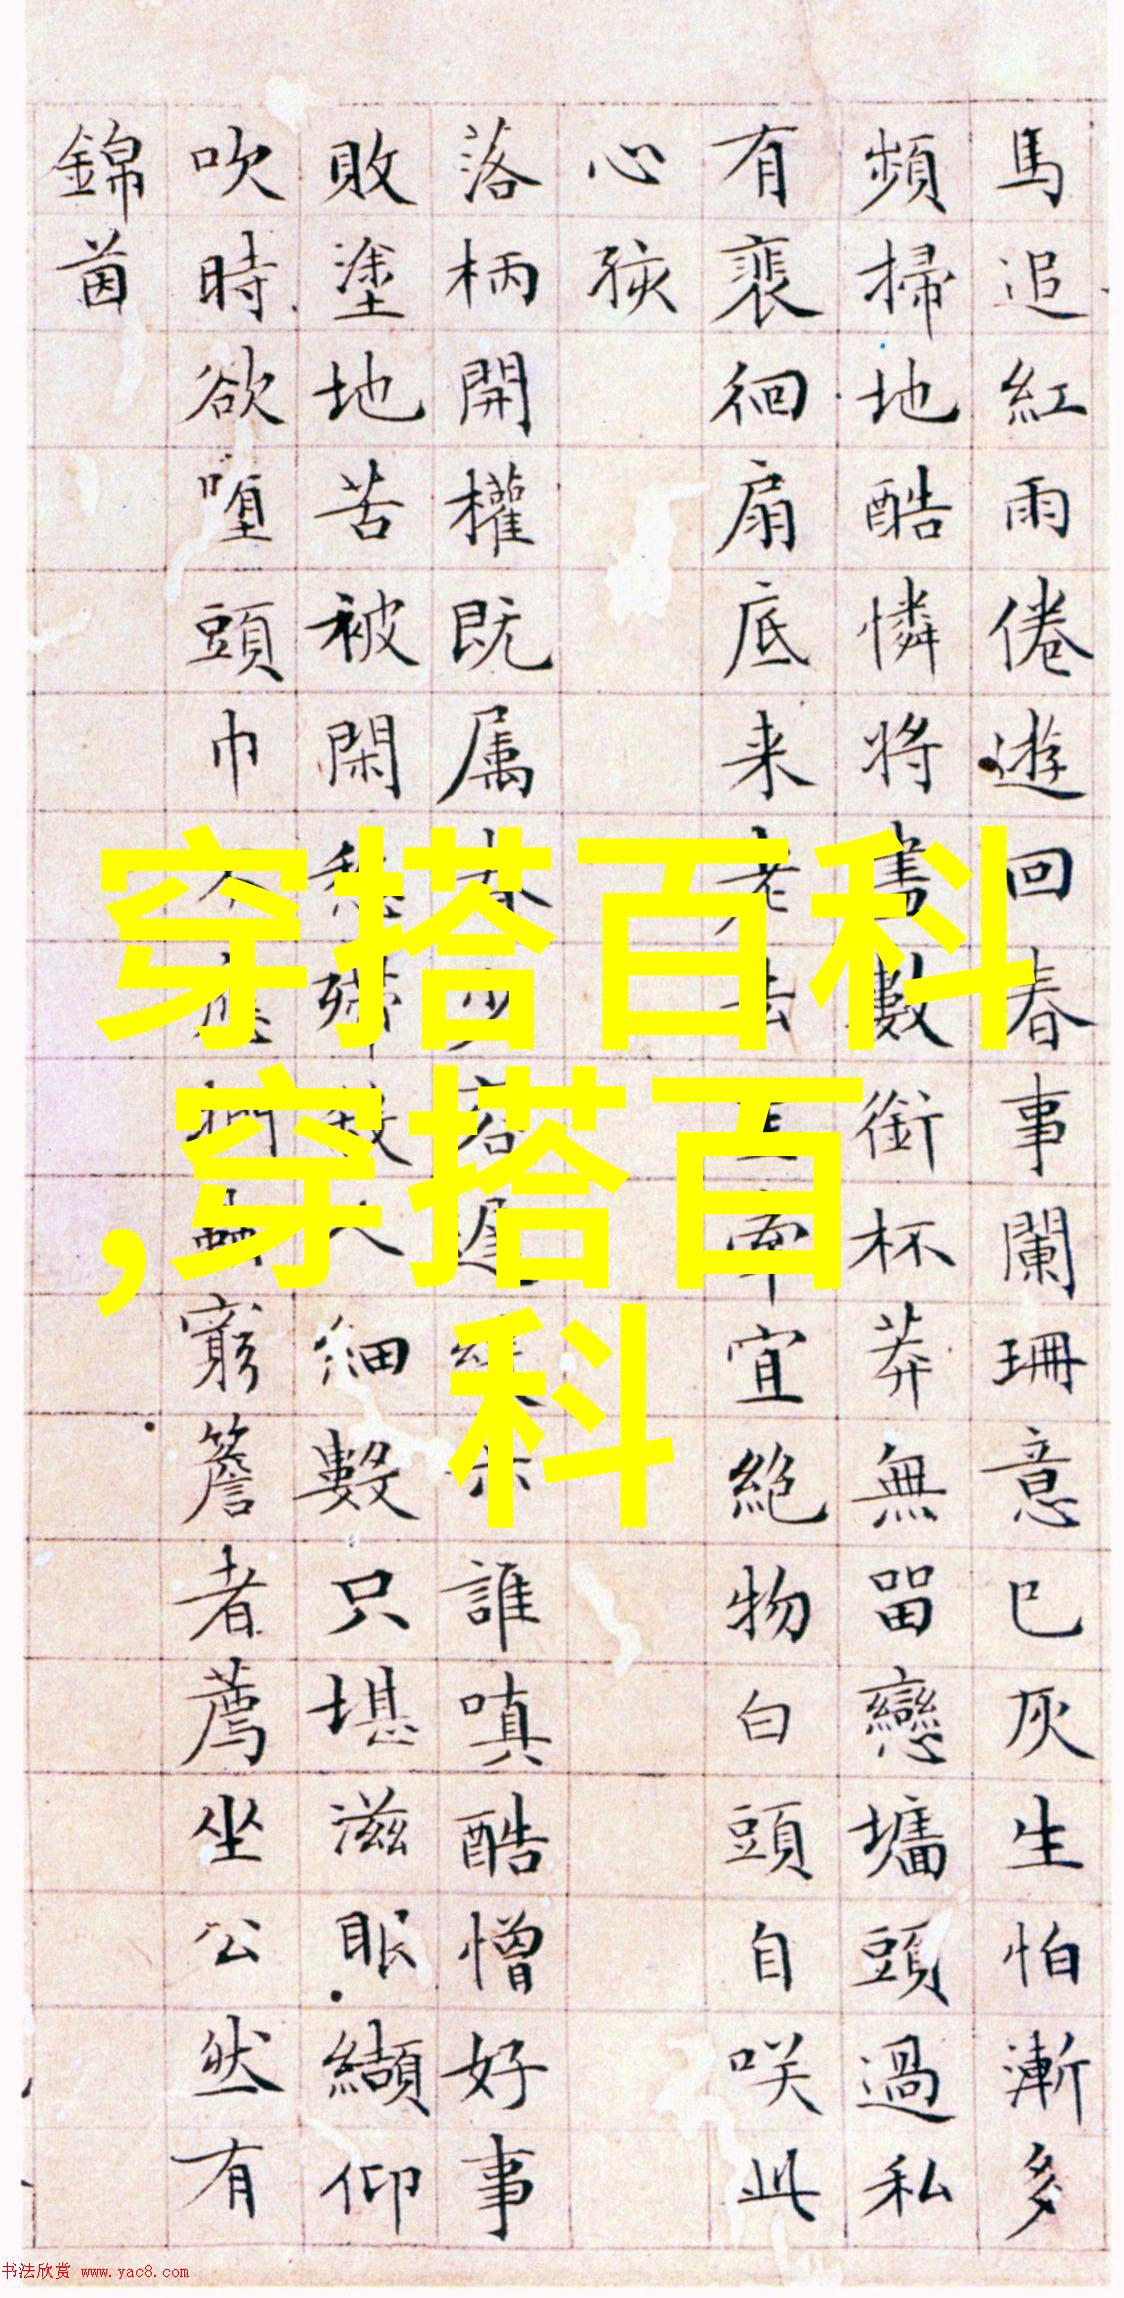 馬追紅雨倦遊回春事闌珊意已灰生怕漸多
頻掃地酷憐將舊數銜杯莽無留戀墉頭過私
有裴徊扇底来老去宜絕物白頭自咲此
心孩
落柄開權既属春誰嗔酷憎好事
敗塗地苦被閑愁殢殺人細數只堪滋眠纈仰
吹時欲嚏頭巾窮簷者薦坐公然有
錦茵
穿搭百科
,穿搭百
科
书法欣赏 www.yac8.com